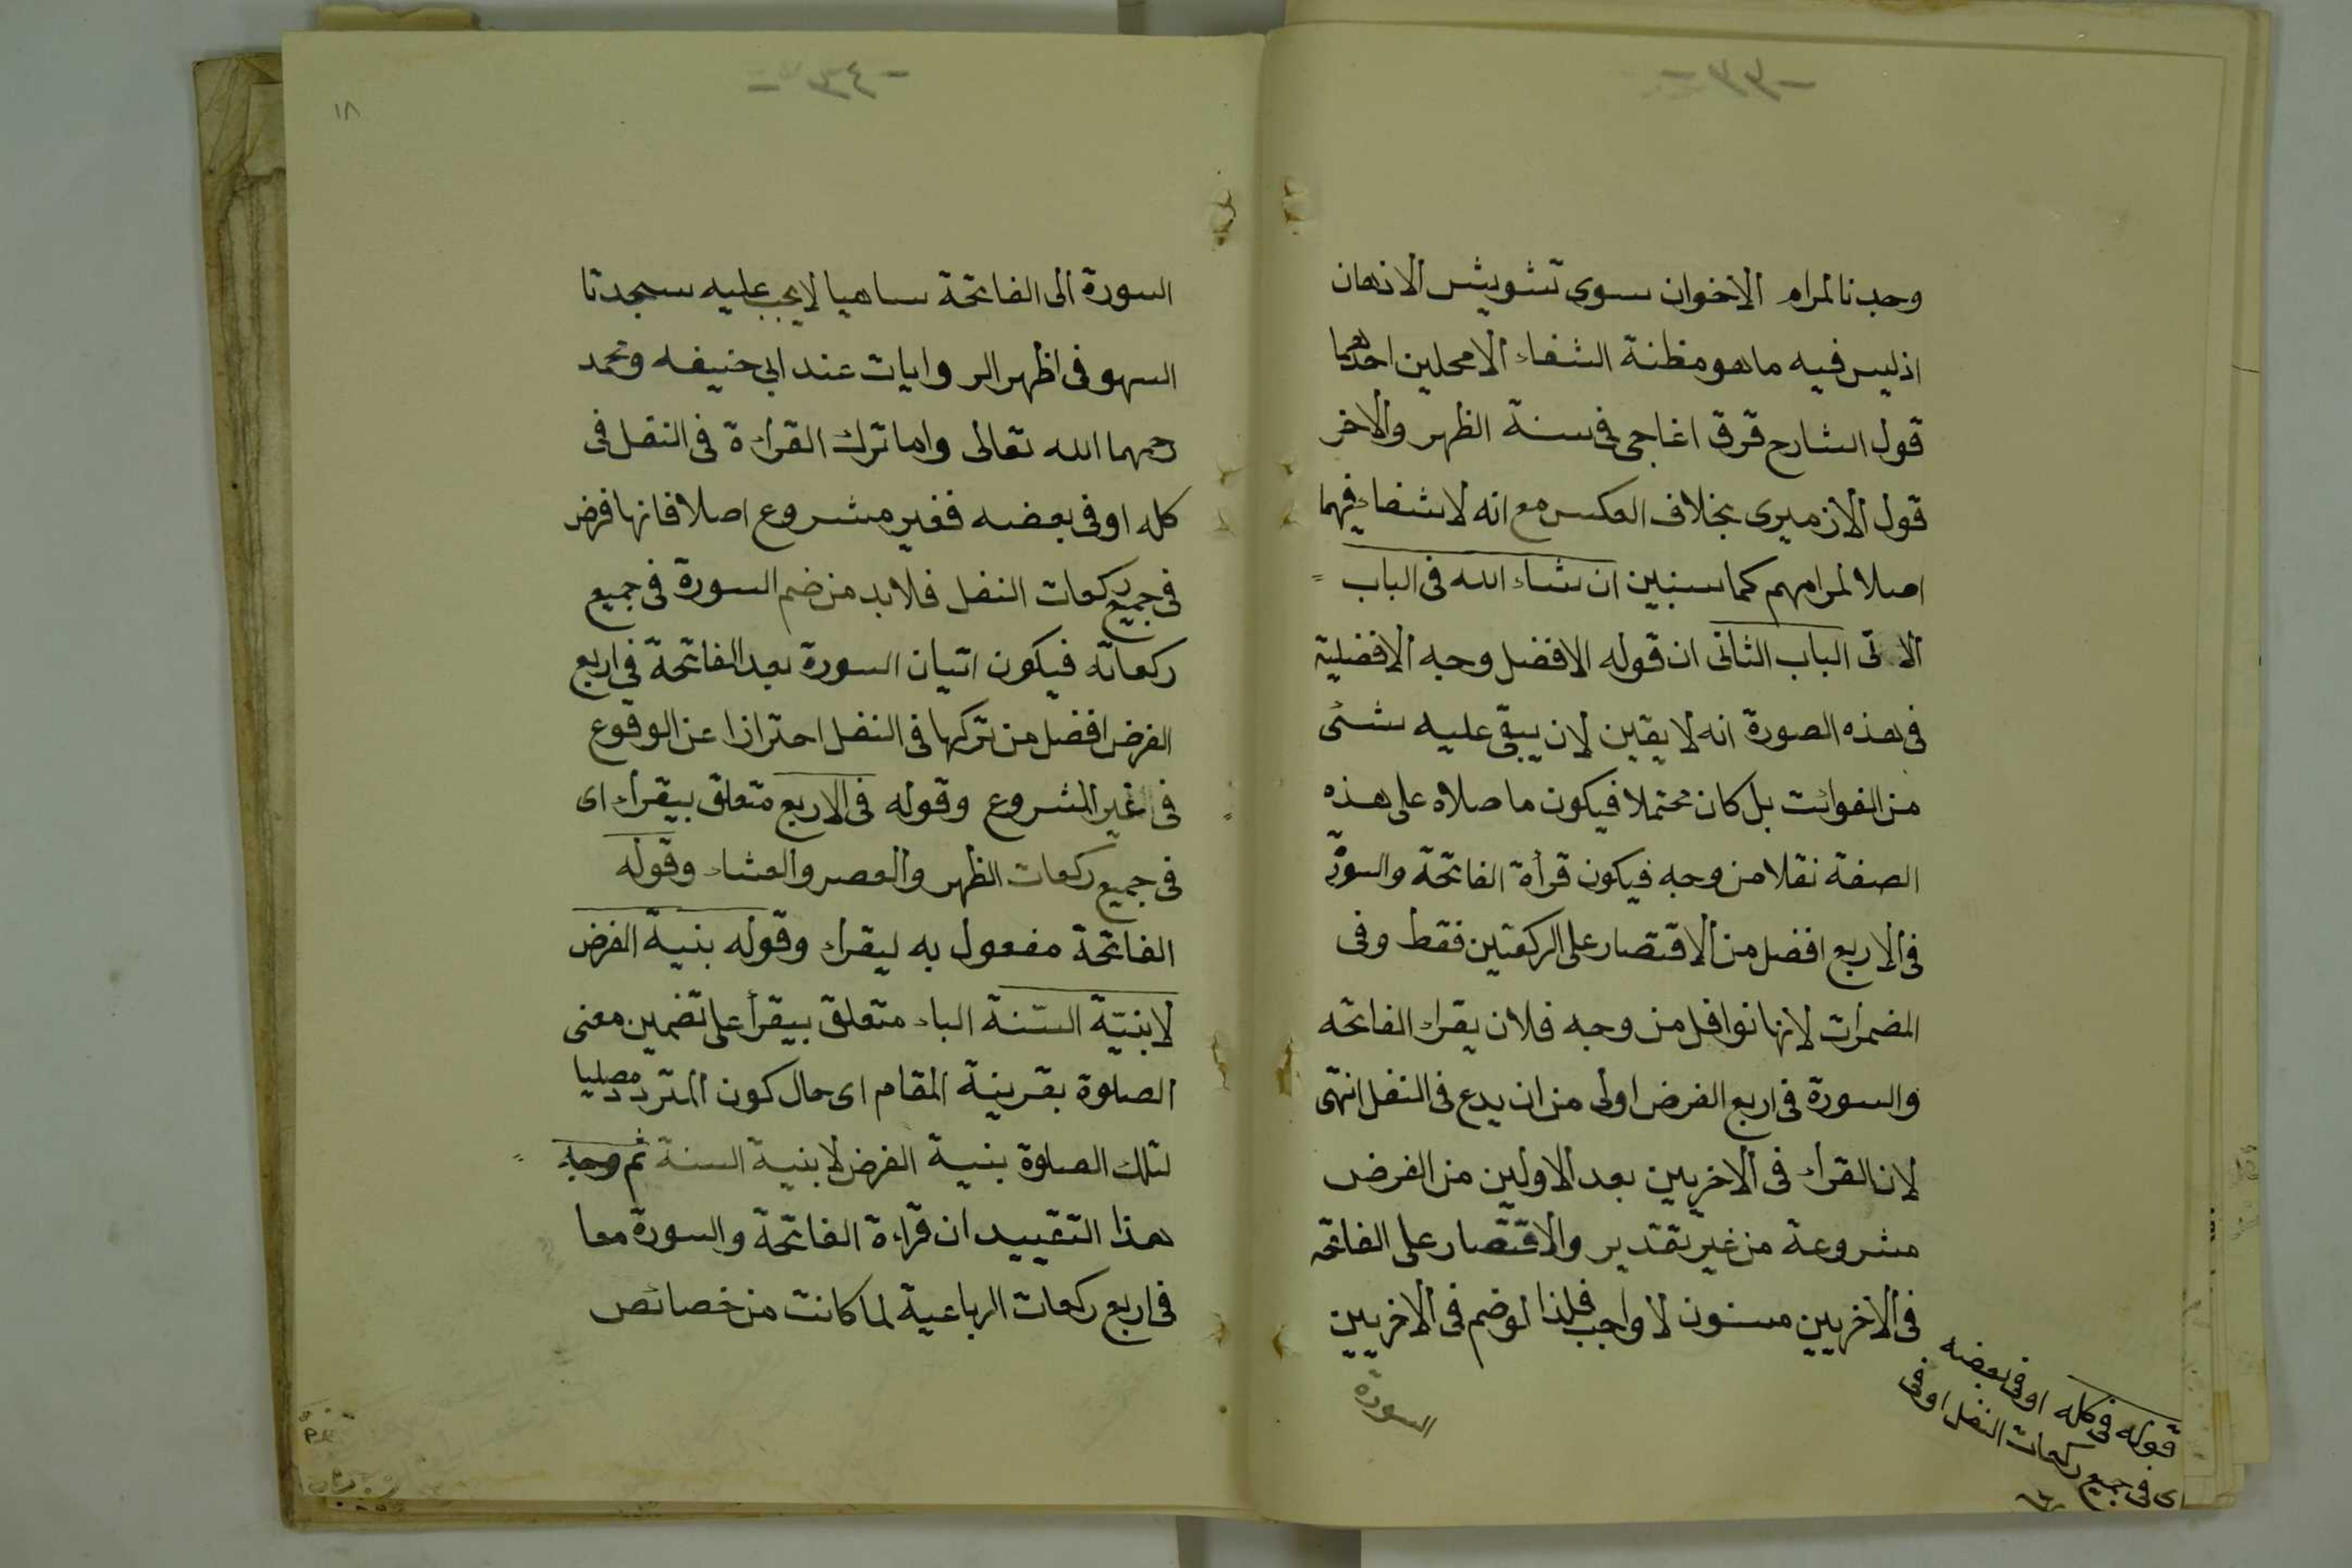 وجدنا لمرام الاخوان سوى تشويش الاذهان
اذ ليس فيه ما هو مظنة الشفاء الا محلين احدهما
قول الشارح قرق اغاجى فى سنة الظهر والاخر
قول الازميرى بخلاف العكس مع انه لا شفاء فيهما
اصلا لمرامهم كما سنبين ان شاء الله فى الباب
الاتى الباب الثانى ان قوله الافضل وجه الافضلية
فى هذه الصورة انه لا يقين لان يبقى عليه شئى
من الفوائت بل كان محتملا فيكون ما صلاه على هذه
الصفة نقلا من وجه فيكون قرأة الفاتحة والسورة
فى الاربع افضل من الاقتصار على الركعتين فقط وفى
المضمرات لانها نوافل من وجه فلان يقراء الفاتحه
والسورة فى اربع الفرض اولى من ان يدع فى النفل انتهى
لان القراء فى الاخريين بعد الاوليين من الفرض
مشروعة من غير تقدير والاقتصار على الفاتحة
فى الاخريين مسنون لا واجب فلذا لو ضم فى الاخريين
السورة
قوله فى كله او فى بعضه
اى فى جميع ركعات النفل او فى
١٨
السورة الى الفاتحة ساهيا لا يجب عليه سجدتا
السهو فى اظهر الروايات عند ابي حنيفه ومحمد
رحمهما الله تعالى واما ترك القراءة فى النفل فى
كله او فى بعضه فغير مشروع اصلا فانها فرض
فى جميع ركعات النفل فلابد من ضم السورة فى جميع
ركعاته فيكون اتيان السورة بعد الفاتحة فى اربع
الفرض افضل من تركها فى النفل احترازا عن الوقوع
فى غير المشروع وقوله فى الاربع متعلق بيقراء اى
فى جميع ركعات الظهر والعصر والعشاء وقوله
الفاتحة مفعول به ليقراء وقوله بنية الفرض
لا بنيّة السّنة الباء متعلق بيقرأ على تضمين معنى
الصلوة بقرينة المقام اى حال كون المتردد مصليا
لتلك الصلوة بنية الفرض لا بنية السنة ثم وجه
هذا التقييد ان قراءة الفاتحة والسورة معا
فى اربع ركعات الرباعية لما كانت من خصائص